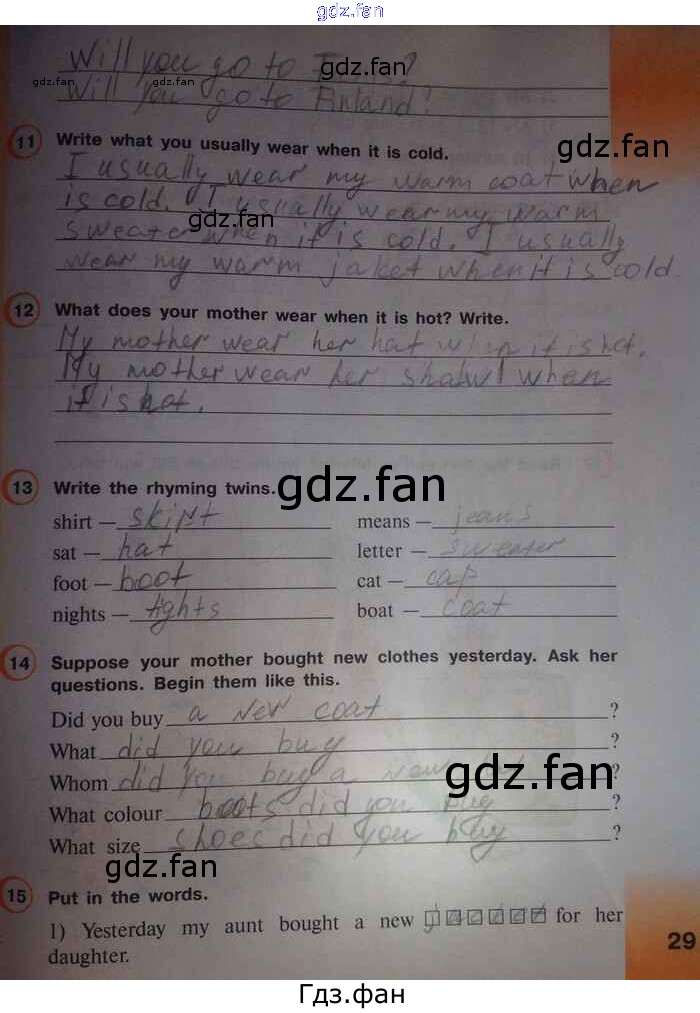 gdz.fan
Will you go to ?
gdz.fan gdz.fan gdz.fan
Will you go to Finland?
11 Write what you usually wear when it is cold.
gdz.fan
I usually wear my warm coat when
is cold. I usually wear my warm
gdz.fan
sweater when it is cold. I usually
wear my warm jaket when it is cold.
12 What does your mother wear when it is hot? Write.
My mother wear her hat when it is hot.
My mother wear her shawl when
it is hot.
13 Write the rhyming twins.
gdz.fan
shirt — skirt means — jeans
sat — hat letter — sweater
foot — boot cat — cap
nights — tights boat — coat
14 Suppose your mother bought new clothes yesterday. Ask her
questions. Begin them like this.
Did you buy a new coat ?
What did you buy ?
Whom did you buy a new ?
gdz.fan
What colour boots did you buy ?
What size shoes did you buy ?
gdz.fan
15 Put in the words.
1) Yesterday my aunt bought a new for her
daughter.
29
Гдз.фан